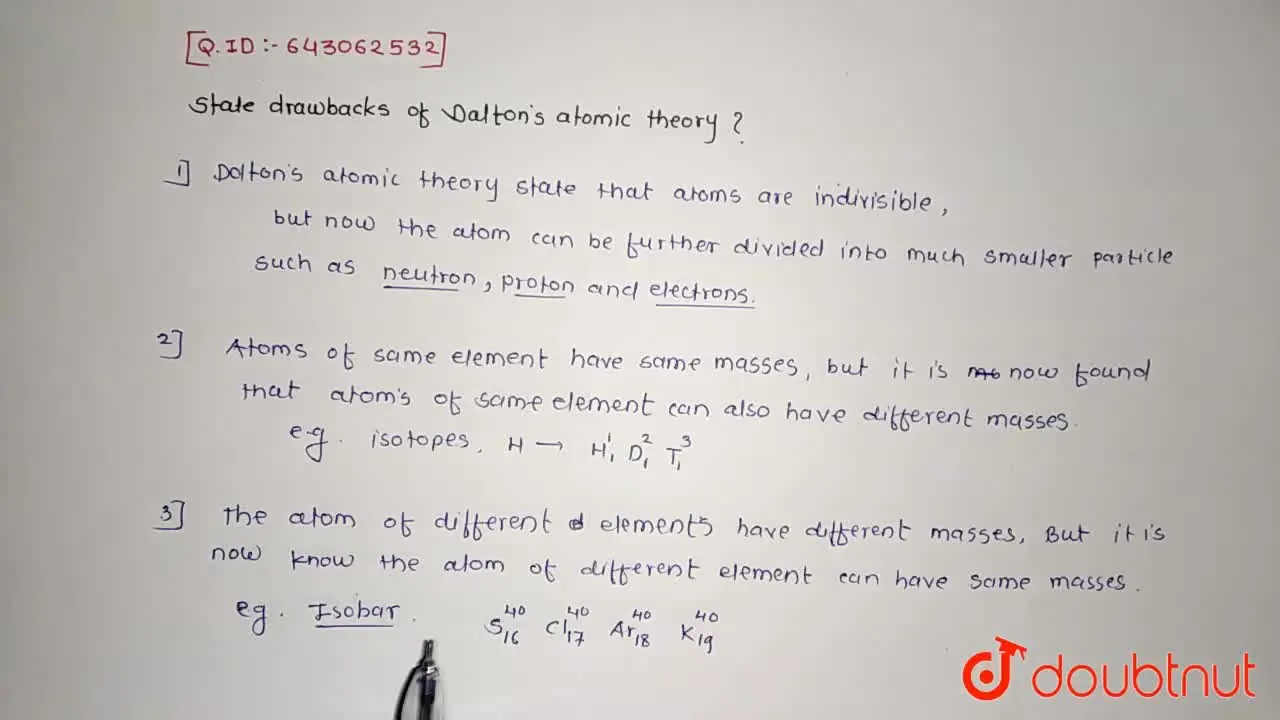 [Q.ID :- 643062532]
State drawbacks of Dalton's atomic theory ?
1] Dalton's atomic theory state that atoms are indivisible,
but now the atom can be further divided into much smaller particle
such as neutron, proton and electrons.
2] Atoms of same element have same masses, but it is now found
that atom's of same element can also have different masses.
e.g. isotopes, H → H₁¹ D₁² T₁³
3] The atom of different elements have different masses, But it is
now know the atom of different element can have same masses.
eg. Isobar. S₁₆⁴⁰ Cl₁₇⁴⁰ Ar₁₈⁴⁰ K₁₉⁴⁰
doubtnut